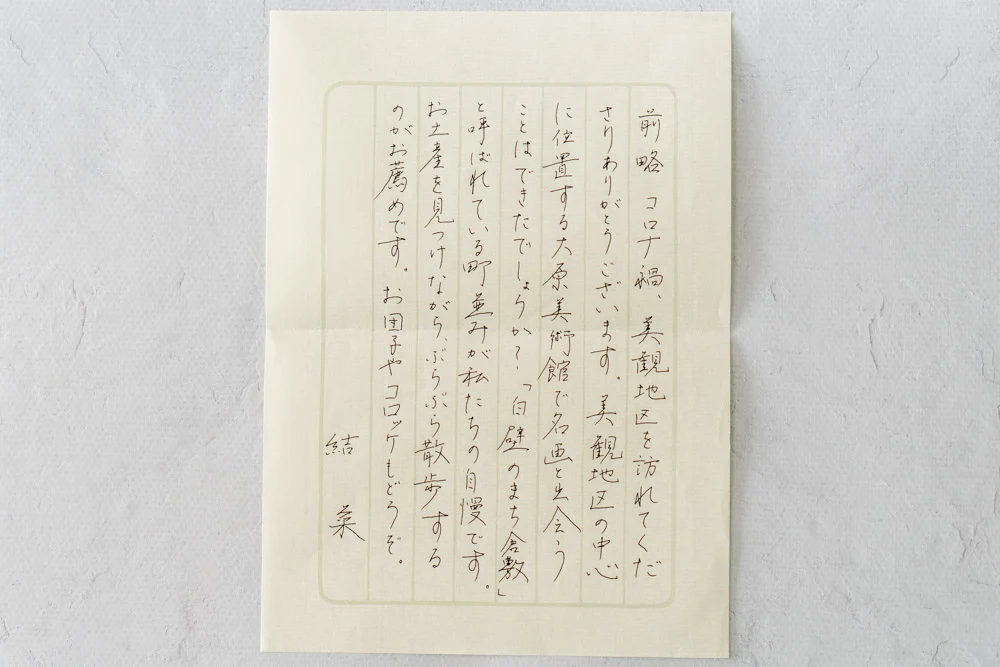 前略 コロナ禍、美観地区を訪れてくだ
さりありがとうございます。美観地区の中心
に位置する大原美術館で名画と出会う
ことはできたでしょうか？「白壁のまち倉敷」
と呼ばれている町並みが私たちの自慢です。
お土産を見つけながら、ぶらぶら散歩する
のがお薦めです。お団子やコロッケもどうぞ。
結菜